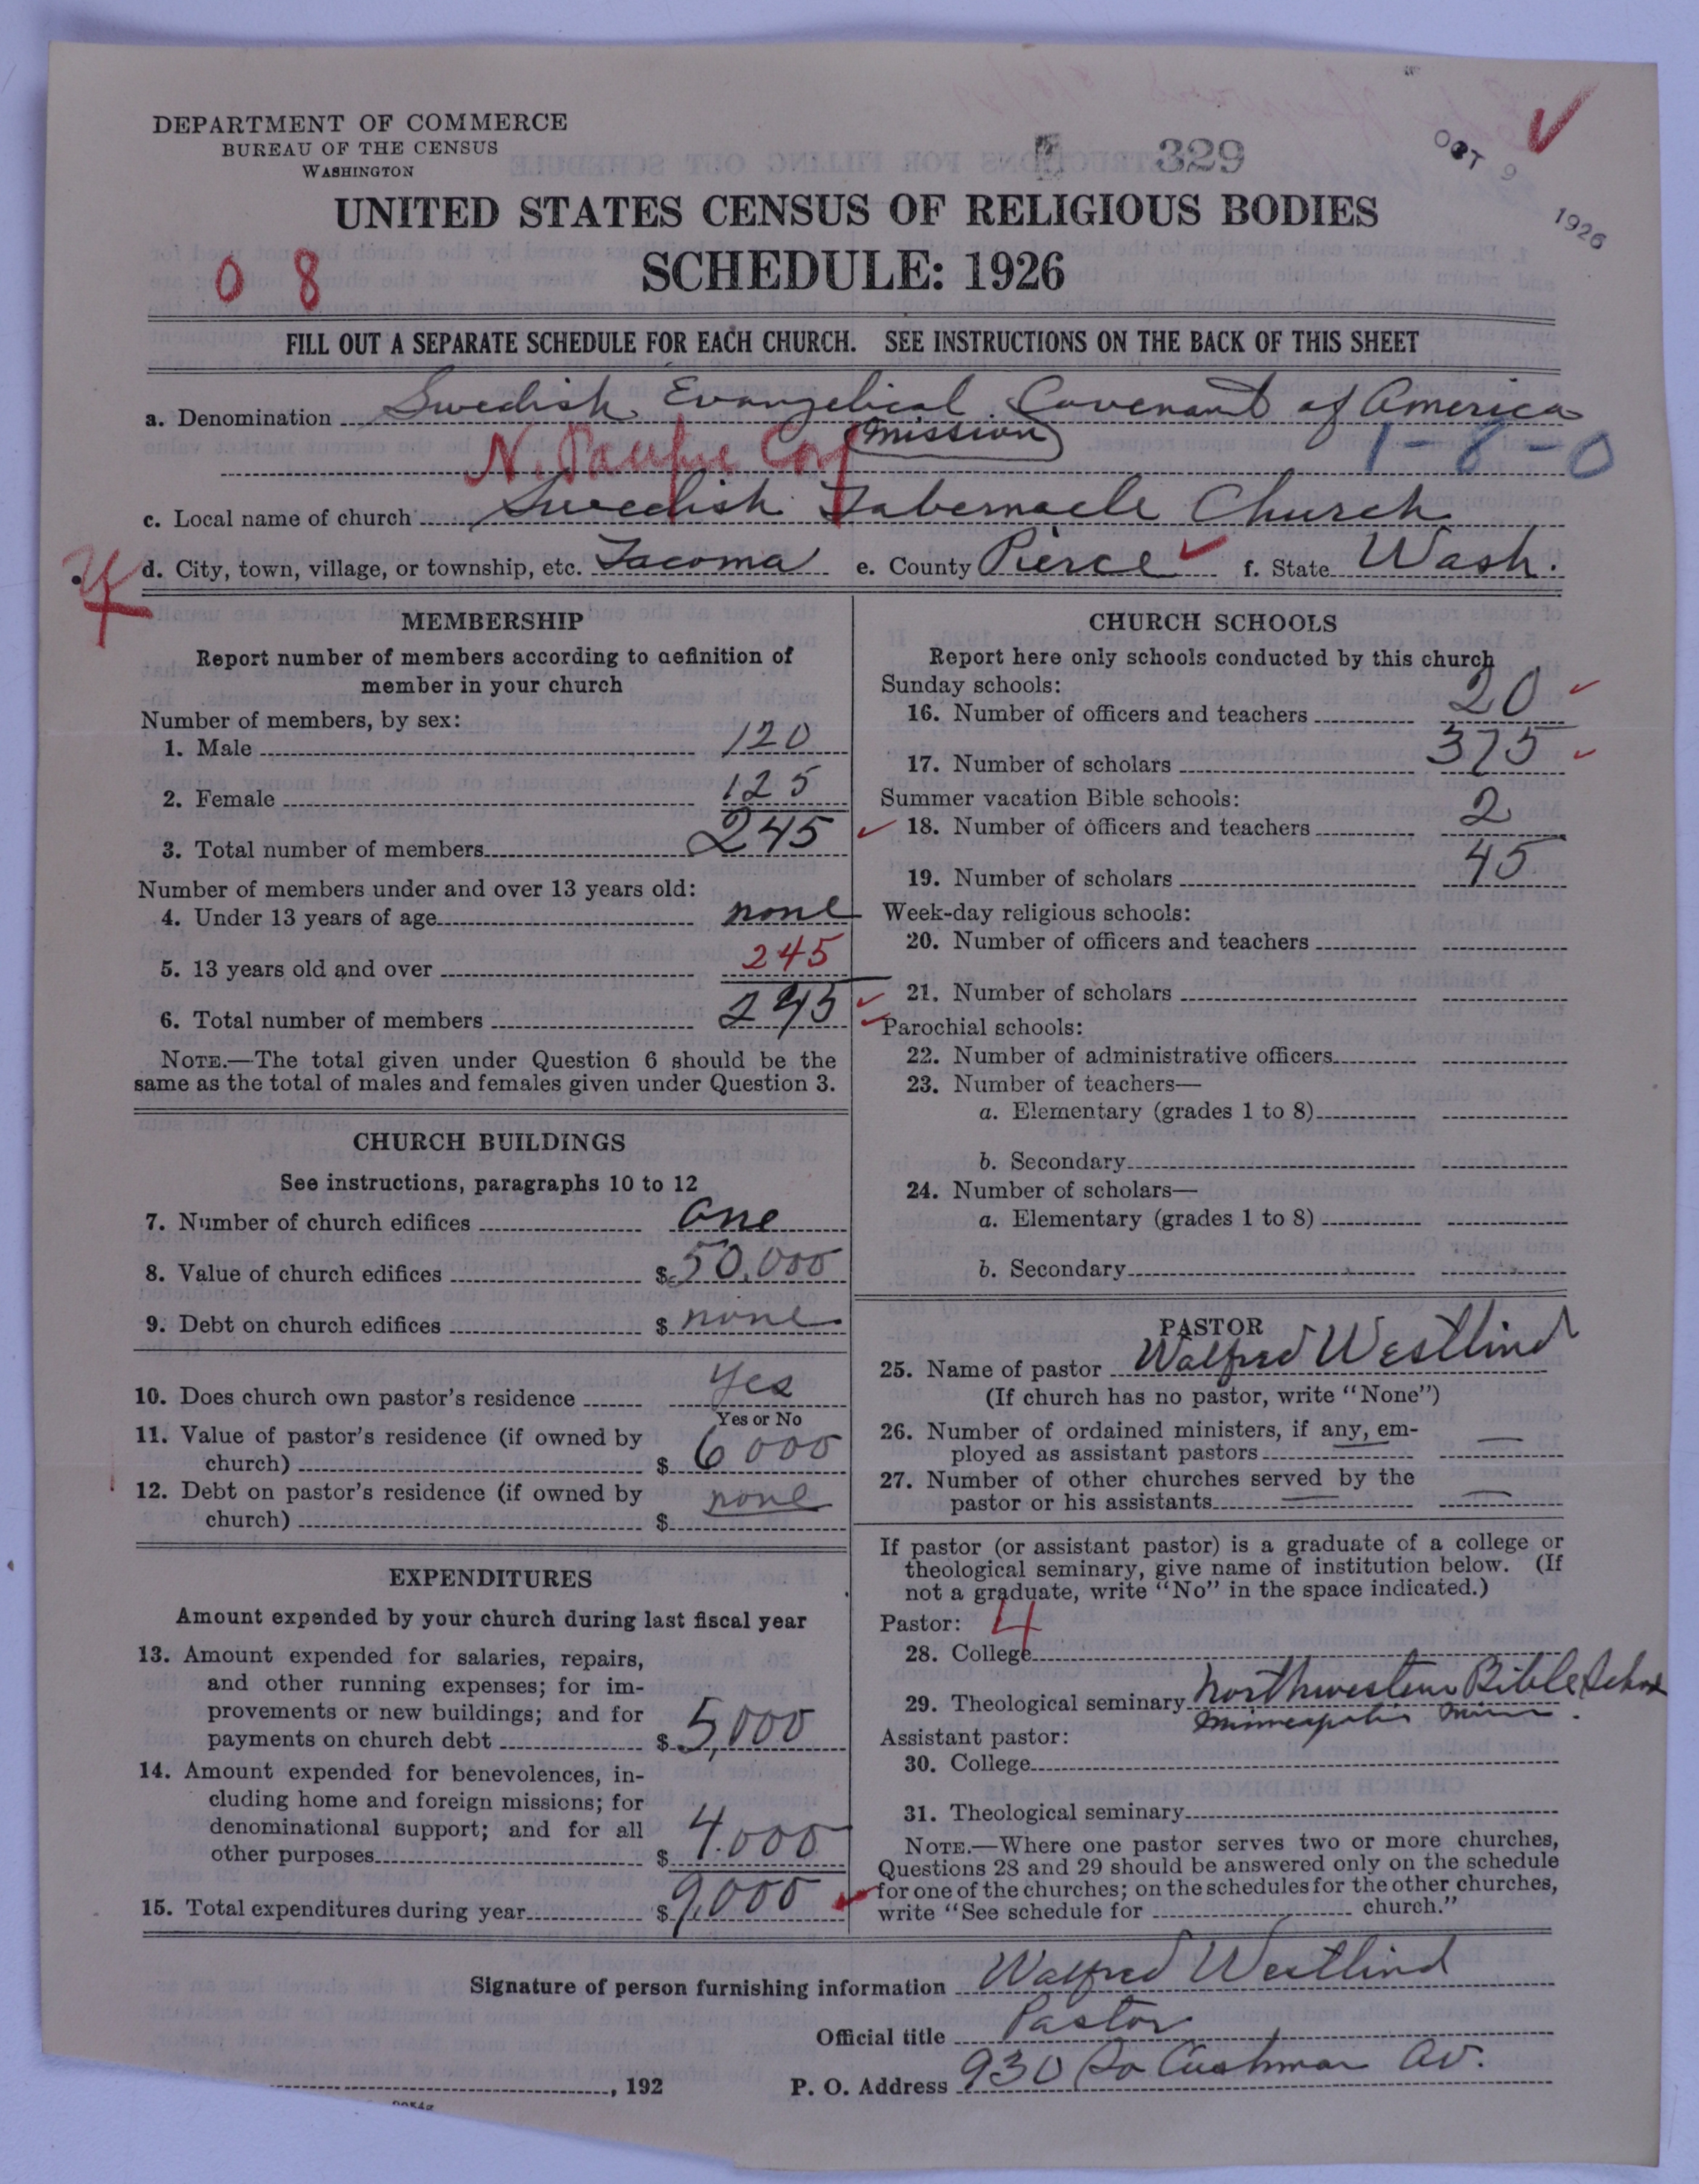 DEPARTMENT OF COMMERCE
BUREAU OF THE CENSUS
WASHINGTON
329
OCT 9 1926
UNITED STATES CENSUS OF RELIGIOUS BODIES
SCHEDULE: 1926
0 8
FILL OUT A SEPARATE SCHEDULE FOR EACH CHURCH. SEE INSTRUCTIONS ON THE BACK OF THIS SHEET
a. Denomination Swedish Evangelical Covenant of America
mission
N. Pacific Conf 1-8-0
c. Local name of church Swedish Tabernacle Church
d. City, town, village, or township, etc. Tacoma e. County Pierce f. State Wash.
MEMBERSHIP
Report number of members according to definition of
member in your church
Number of members, by sex:
1. Male 120
2. Female 125
3. Total number of members 245
Number of members under and over 13 years old:
4. Under 13 years of age none
5. 13 years old and over 245
6. Total number of members 245
NOTE.—The total given under Question 6 should be the
same as the total of males and females given under Question 3.
CHURCH BUILDINGS
See instructions, paragraphs 10 to 12
7. Number of church edifices One
8. Value of church edifices $ 50,000
9. Debt on church edifices $ none
10. Does church own pastor's residence Yes
Yes or No
11. Value of pastor's residence (if owned by
church) $ 6000
12. Debt on pastor's residence (if owned by
church) $ none
EXPENDITURES
Amount expended by your church during last fiscal year
13. Amount expended for salaries, repairs,
and other running expenses; for im-
provements or new buildings; and for
payments on church debt $ 5,000
14. Amount expended for benevolences, in-
cluding home and foreign missions; for
denominational support; and for all
other purposes $ 4.000
15. Total expenditures during year $ 9,000
CHURCH SCHOOLS
Report here only schools conducted by this church
Sunday schools:
16. Number of officers and teachers 20
17. Number of scholars 375
Summer vacation Bible schools:
18. Number of officers and teachers 2
19. Number of scholars 45
Week-day religious schools:
20. Number of officers and teachers
21. Number of scholars
Parochial schools:
22. Number of administrative officers
23. Number of teachers—
a. Elementary (grades 1 to 8)
b. Secondary
24. Number of scholars—
a. Elementary (grades 1 to 8)
b. Secondary
PASTOR
25. Name of pastor Walfred Westlind
(If church has no pastor, write "None")
26. Number of ordained ministers, if any, em-
ployed as assistant pastors —
27. Number of other churches served by the
pastor or his assistants —
If pastor (or assistant pastor) is a graduate of a college or
theological seminary, give name of institution below. (If
not a graduate, write "No" in the space indicated.)
Pastor: 4
28. College
29. Theological seminary Northwestern Bible School
Minneapolis Minn.
Assistant pastor:
30. College
31. Theological seminary
NOTE.—Where one pastor serves two or more churches,
Questions 28 and 29 should be answered only on the schedule
for one of the churches; on the schedules for the other churches,
write "See schedule for church."
Signature of person furnishing information Walfred Westlind
Official title Pastor
, 192 P. O. Address 930 So Cushman Av.